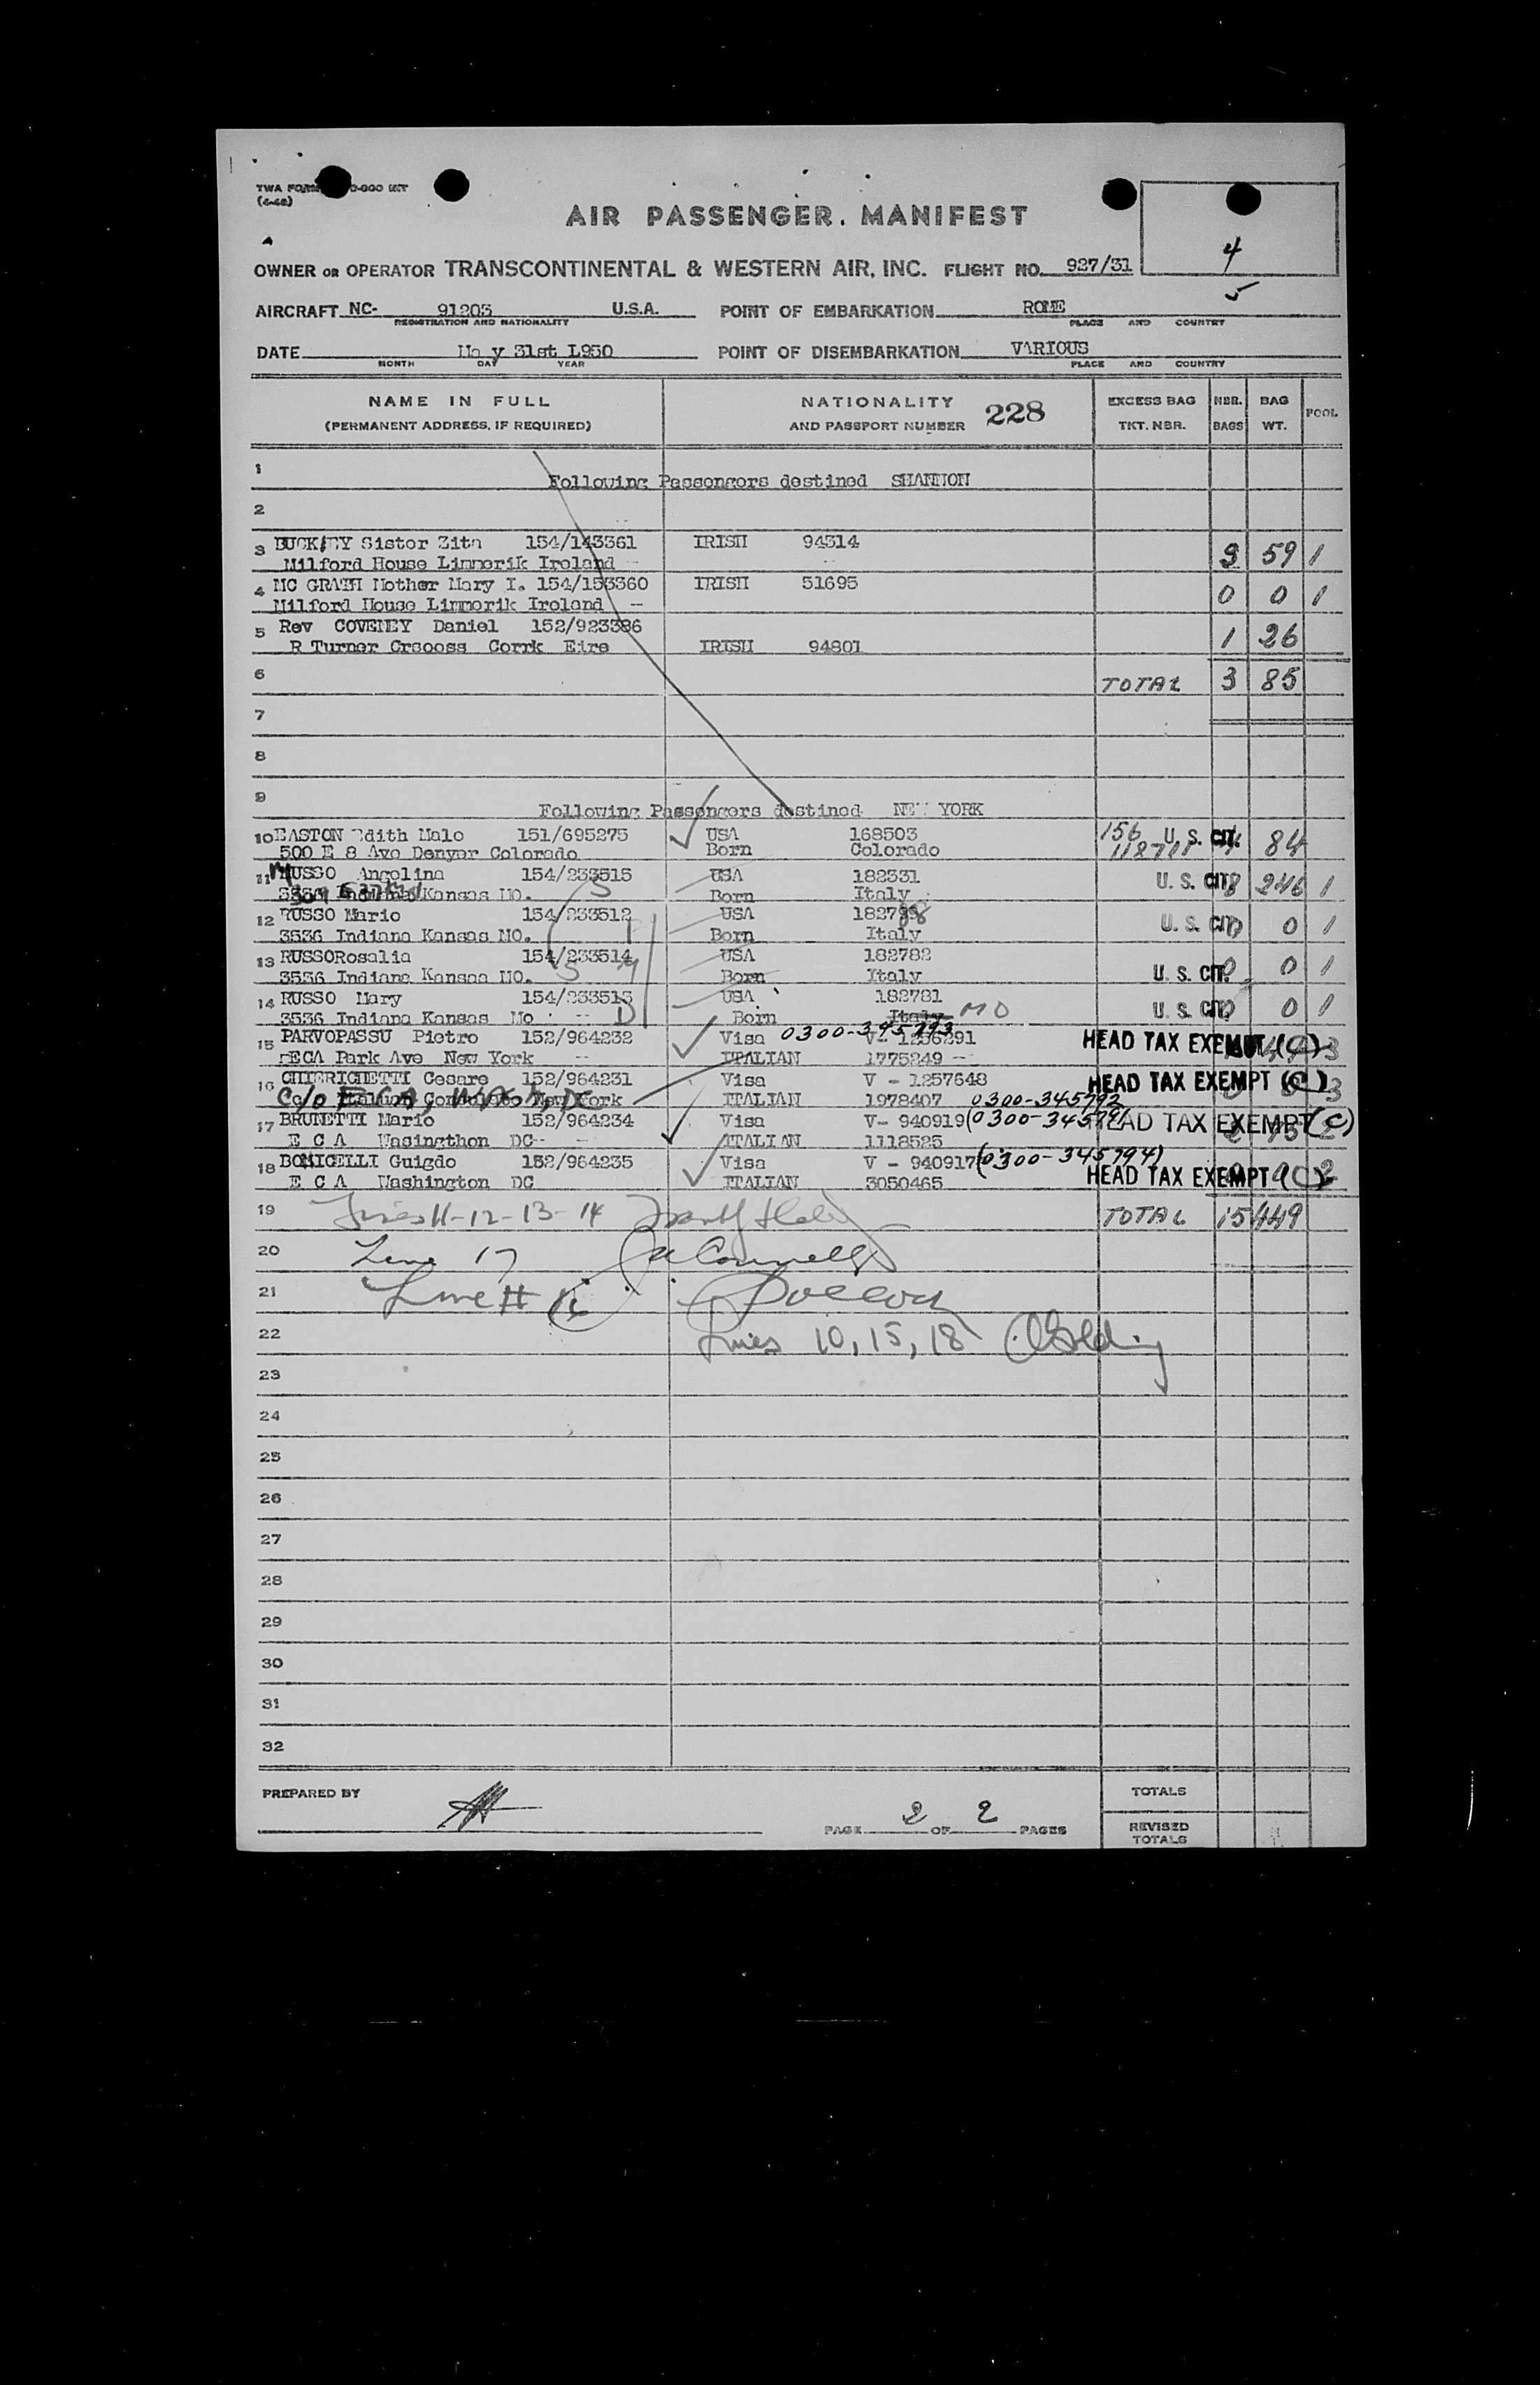 TWA FORM
AIR PASSENGER. MANIFEST
4
OWNER OR OPERATOR TRANSCONTINENTAL & WESTERN AIR, INC. FLIGHT NO. 927/31
AIRCRAFT NC- 91203 U.S.A. POINT OF EMBARKATION ROME
REGISTRATION AND NATIONALITY PLACE AND COUNTRY
DATE Ma y 31st L950 POINT OF DISEMBARKATION VARIOUS
MONTH DAY YEAR PLACE AND COUNTRY
NAME IN FULL NATIONALITY 228 EXCESS BAG NBR. BAG POOL
(PERMANENT ADDRESS, IF REQUIRED) AND PASSPORT NUMBER TKT. NBR. BAGS WT.
1 Following Passengers destined SHANNON
2
3 Sister Zita 154/143361 IRISH 94314 59 1
Milford House Limmerik Ireland
4 MC GRATH Mother Mary I. 154/153360 IRISH 51695 0 0 1
Milford House Limmerik Ireland --
5 Rev COVENEY Daniel 152/923386 1 26
R Turner Crsooss Corrk Eire IRISH 94801
6 TOTAL 3 85
7
8
9 Following Passengers destined NEW YORK
10 EASTON Edith Male 151/695275 USA 168503 156 U. S. CIT. 84
500 E 8 Ave Denver Colorado Born Colorado
11 MUSSO Angelina 154/233515 USA 182331 U. S. CIT. 8 246 1
Kansas MO. Born Italy
12 RUSSO Mario 154/233512 USA U. S. CIT. 0 1
3536 Indiana Kansas MO. Born Italy
13 RUSSORosalia 154/233514 USA 182782 U. S. CIT. 0 1
3536 Indiana Kansas MO. Born Italy
14 RUSSO Mary 154/233513 USA 182781 U. S. CIT. 0 1
3536 Indiana Kansas Mo Born Italy MO
15 PARVOPASSU Pietro 152/964232 Visa 0300-345793 V- 1256291 HEAD TAX EXEMPT (C) 3
ECA Park Ave New York -- ITALIAN 1775249 --
16 CHIERICHETTI Cesare 152/964231 Visa V - 1257648 HEAD TAX EXEMPT (C) 3
C/o E C A, WASH, DC ITALIAN 1978407 0300-345792
17 BRUNETTI Mario 152/964234 Visa V- 940919 (0300-345791 HEAD TAX EXEMPT (C)
E C A Wasingthon DC-- ITALIAN 1118525
18 BONICELLI Guigdo 152/964235 Visa V - 940917 (0300-345794) HEAD TAX EXEMPT (C) 2
E C A Washington DC ITALIAN 3050465
19 Lines 11-12-13-14 TOTAL 15 449
20 Line 17
21 Line # 16
22 Lines 10, 15, 18
23
24
25
26
27
28
29
30
31
32
PREPARED BY TOTALS
PAGE 2 OF 2 PAGES REVISED
TOTALS